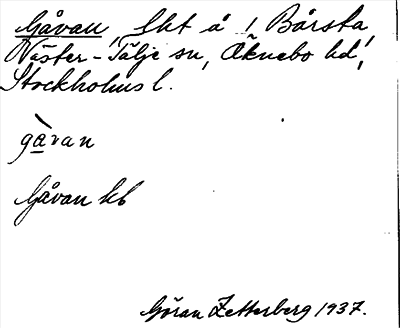 Gåvan, Skt å i Bårsta,
Väster-Tälje sn, Öknebo hd,
Stockholms l.
gàvan
Gåvan kb
Göran Zetterberg 1937.